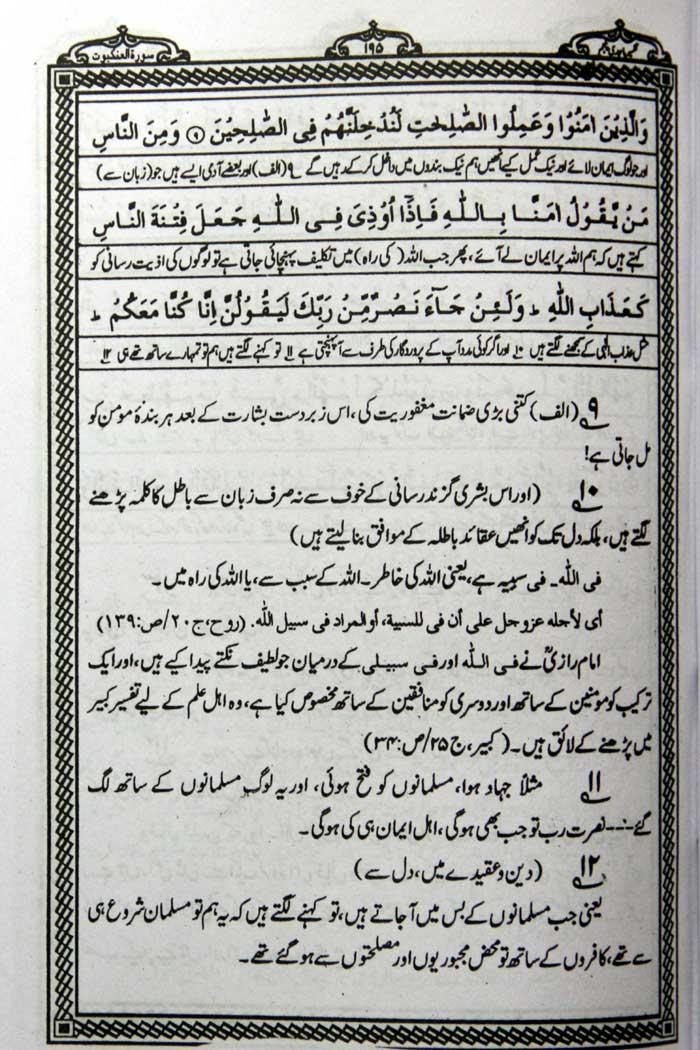 سورۃ العنکبوت
۱۹۵
وَالَّذِيْنَ اٰمَنُوْا وَعَمِلُوا الصّٰلِحٰتِ لَنُدْخِلَنَّهُمْ فِى الصّٰلِحِيْنَ ۹ وَمِنَ النَّاسِ
اور جو لوگ ایمان لائے اور نیک عمل کیے انھیں ہم نیک بندوں میں داخل کرکے رہیں گے ۹ (الف) اور بعضے آدمی ایسے ہیں جو (زبان سے)
مَنْ يَّقُوْلُ اٰمَنَّا بِاللّٰهِ فَاِذَآ اُوْذِىَ فِى اللّٰهِ جَعَلَ فِتْنَةَ النَّاسِ
کہتے ہیں کہ ہم اللہ پر ایمان لے آئے، پھر جب اللہ (کی راہ) میں تکلیف پہنچائی جاتی ہے تو لوگوں کی اذیت رسانی کو
كَعَذَابِ اللّٰهِ ؕ وَلَئِنْ جَآءَ نَصْرٌ مِّنْ رَّبِّكَ لَيَقُوْلُنَّ اِنَّا كُنَّا مَعَكُمْ ؕ
مثل عذاب الٰہی کے سمجھنے لگتے ہیں ۱۰ اور اگر کوئی مدد آپ کے پروردگار کی طرف سے آپہنچتی ہے ۱۱ تو کہنے لگتے ہیں ہم تو تمہارے ساتھ تھے ہی ۱۲
۹ (الف) کتنی بڑی ضمانت مغفوریت کی، اس زبردست بشارت کے بعد ہر بندۂ مومن کو
مل جاتی ہے!
۱۰ (اور اس بشری گزند رسانی کے خوف سے نہ صرف زبان سے باطل کا کلمہ پڑھنے
لگتے ہیں، بلکہ دل تک کو انھیں عقائد باطلہ کے موافق بنا لیتے ہیں)
فی اللّٰہ۔ فی سببیہ ہے، یعنی اللہ کی خاطر۔ اللہ کے سبب سے، یا اللہ کی راہ میں۔
أی لأجله عزوجل علی أن فی للسببية، أو المراد فی سبیل الله. (روح، ج۲۰/ص:۱۳۹)
امام رازیؒ نے فی اللّٰہ اور فی سبیلی کے درمیان جو لطیف نکتے پیدا کیے ہیں، اور ایک
ترکیب کو مومنین کے ساتھ اور دوسری کو منافقین کے ساتھ مخصوص کیا ہے، وہ اہل علم کے لیے تفسیر کبیر
میں پڑھنے کے لائق ہیں۔ (کبیر، ج۲۵/ص:۳۴)
۱۱ مثلاً جہاد ہوا، مسلمانوں کو فتح ہوئی، اور یہ لوگ مسلمانوں کے ساتھ لگ
گئے --- نصرت رب تو جب بھی ہوگی، اہل ایمان ہی کی ہوگی۔
۱۲ (دین و عقیدے میں، دل سے)
یعنی جب مسلمانوں کے بس میں آجاتے ہیں، تو کہنے لگتے ہیں کہ یہ ہم تو مسلمان شروع ہی
سے تھے، کافروں کے ساتھ تو محض مجبوریوں اور مصلحتوں سے ہو گئے تھے۔